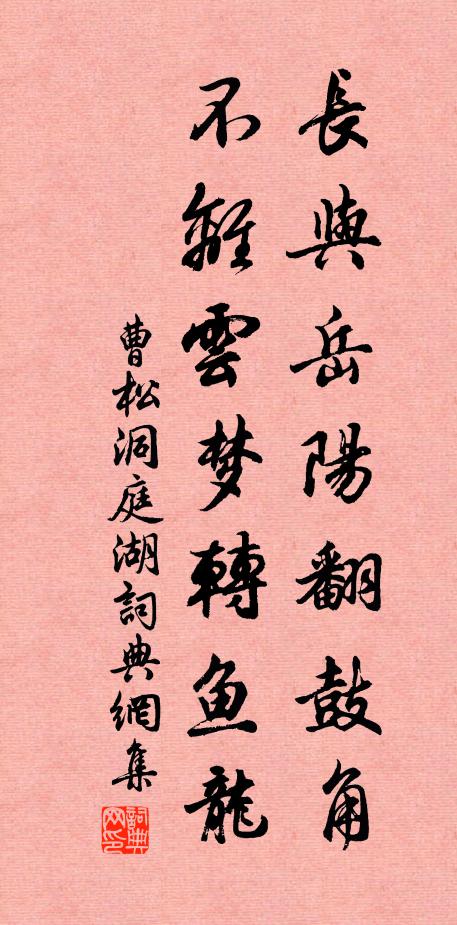 長與岳陽翻鼓角
不離雲梦轉鱼龍
曹松洞庭湖詞典網集
詞典网印